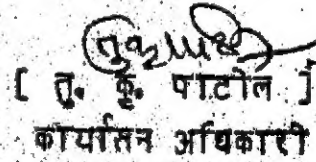 [ तु. कृ. पाटोल ]
कार्यासन अधिकारी